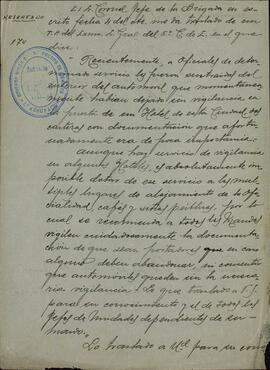 RESERVADO
170
El Sr. Coronel Jefe de la Brigada en es-
crito fecha 4 del acte. me da traslado de un
del Excmo. Sr. Gral. del 5º C. de E. en el que
dice:
"Recientemente, a Oficiales de deter-
minado servicio le fueron sustraidas del
interior del automovil que momentanea-
mente habian dejado sin vigilancia en
la puerta de un Hotel de esta Ciudad dos
carteras con documentación que afortu-
nadamente era de poca importancia.
Aunque hay servicio de vigilancia
en algunos Hoteles, es absolutamente im-
posible dotar de ese servicio a los mul-
tiples lugares de alojamiento de la Ofi-
cialidad, cafés y sitios públicos, por lo
cual se recomienda a todos los Mandos
vigilen cuidadosamente la documenta-
ción de que sean portadores que en caso
alguno deben abandonar, ni consentir
que automoviles queden sin la necesa-
ria vigilancia. Lo que traslado a V.S.
para su conocimiento y el de todos los
Jefes de Unidades dependientes de su
mando."
Lo traslado a Ud. para su cono-